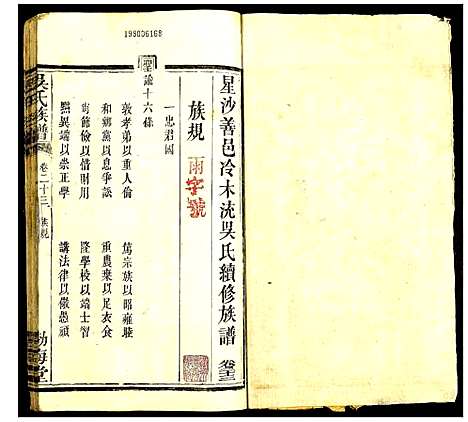 199006168
星沙善邑冷木沇吳氏續修族譜
卷廿三
族規
雨字號
一忠君國
聖諭十六條
敦孝弟以重人倫
篤宗族以昭雍睦
和鄉黨以息爭訟
重農桑以足衣食
尚節儉以惜財用
隆學校以端士習
黜異端以崇正學
講法律以儆愚頑
吳氏族譜
卷二十三
族規
渤海堂